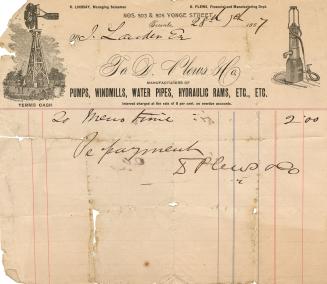 R. LINDSAY, Managing Salesman D. PLEWS, Financial and Manufacturing Dept.
NOS. 503 & 505 YONGE STREET,
28th 1887
To D. Plews & Co
MANUFACTURERS OF
PUMPS, WINDMILLS, WATER PIPES, HYDRAULIC RAMS, ETC., ETC.
TERMS CASH
Interest charged at the rate of 8 per cent. on overdue accounts.
To Mens time 2.00
payment
D Plews & Co